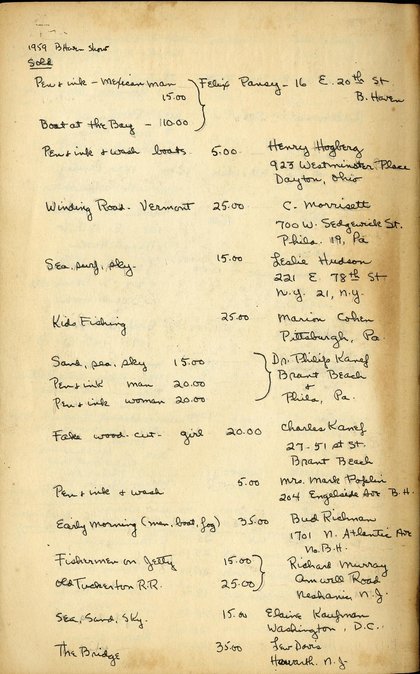 1959 B Haven Show
Sold
Pen & ink - Mexican man
15.00
Felix Pansy - 16 E. 20th St
B. Haven
Boat at the Bay - 110.00
Pen & ink & wash boats 5.00 Henry Hogberg
923 Westminster Place
Dayton, Ohio
Winding Road - Vermont 25.00 C. Morrisett
700 W. Sedgewick St.
Phila. 19, Pa
Sea, surf, sky. 15.00 Leslie Hudson
221 E. 78th St
N.Y. 21, N.Y.
Kids Fishing 25.00 Marion Cohen
Pittsburgh, Pa.
Sand, sea, sky 15.00 Dr. Philip Kanef
Pen & ink man 20.00 Brant Beach
&
Pen & ink woman 20.00 Phila, Pa.
Fake wood-cut - girl 20.00 Charles Kanef
27-51 st St.
Brant Beach
Pen & ink & wash 5.00 Mrs. Mark Poplin
204 Engleside Ave B.H.
Early Morning (man, boat, fog) 35.00 Bud Richman
1701 N. Atlantic Ave
No. B.H.
Fishermen on Jetty 15.00 Richard Murray
Old Tuckerton R.R. 25.00 Amwell Road
Neshanic N.J.
Sea, Sand, Sky. 15.00 Elaine Kaufman
Washington, D.C.
The Bridge 35.00 Lew Davis
Haworth. N.J.